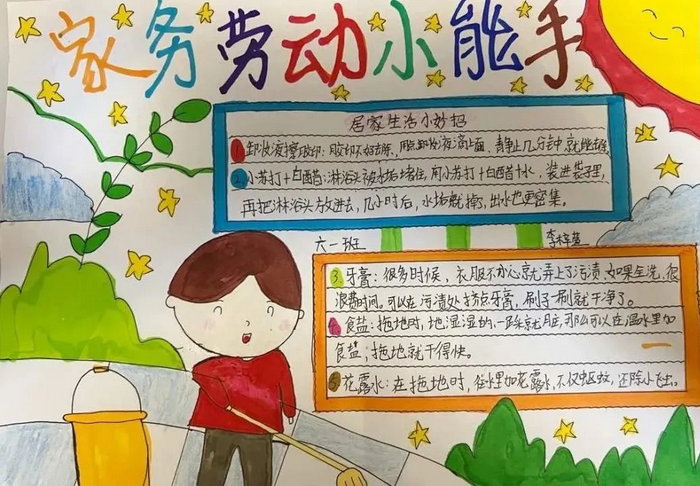 家务劳动小能手
居家生活小妙招
1.卸妆液擦胶印:胶印不好去除,用卸妆液滴上面,静止几分钟就能去除。
2.小苏打+白醋:淋浴头被水垢堵住,用小苏打+白醋+水,装进袋子里,
再把淋浴头放进去,几小时后,水垢就掉,出水也更密集。
六一班
李梓萱
3.牙膏:很多时候,衣服不小心就弄上了污渍,如果全洗,很
浪费时间。可以在污渍处挤点牙膏,刷子一刷就干净了。
4.食盐:拖地时,地湿湿的,一踩就脏,那么可以在温水里加
食盐,拖地就干得快。
5.花露水:在拖地时,往水里加花露水,不仅驱蚊,还除小飞虫。